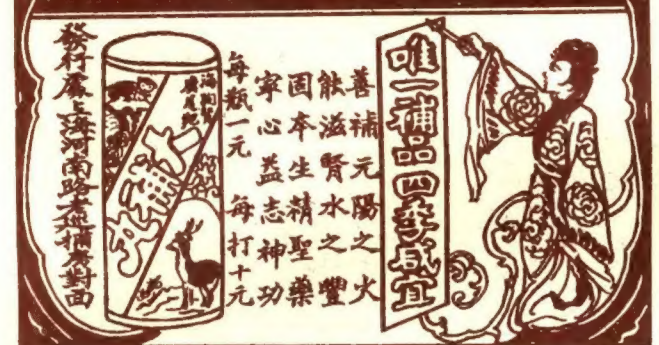 唯一補品四季咸宜
善補元陽之火
能滋腎水之豐
固本生精聖藥
寧心益志神功
每瓶一元　每打十元
海狗腎
廣尾蛇
大補丸
發行處上海河南路老巡捕房對面